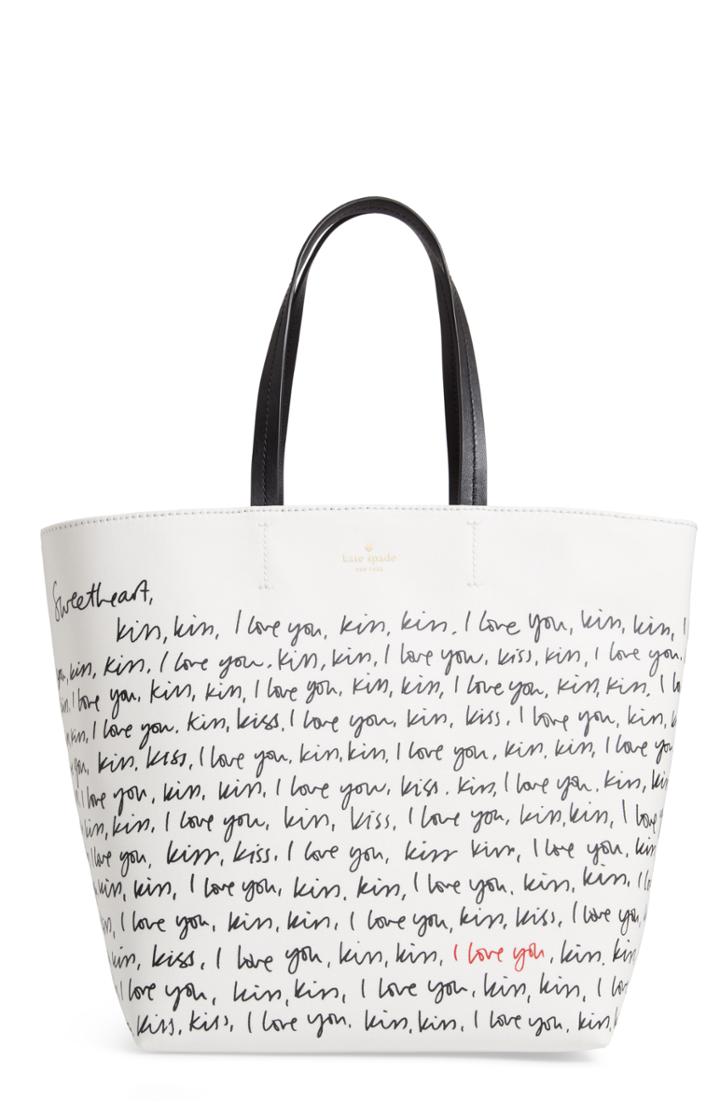 kate spade
NEW YORK
Sweetheart,
kiss, kiss, I love you, kiss, kiss. I love you, kiss, kiss, I
kiss, kiss. I love you. kiss, kiss, I love you, kiss, kiss, I love you.
I love you. kiss, kiss, I love you, kiss, kiss, I love you, kiss, kiss. I
kiss, I love you. kiss, kiss. I love you, kiss, kiss. I love you, kiss,
kiss. kiss, I love you. kiss, kiss, I love you, kiss. kiss, I love you
I love you, kiss, kiss, I love you, kiss. kiss, I love you. kiss, kiss
kiss, kiss, I love you, kiss, kiss, I love you, kiss, kiss, I love
I love you, kiss, kiss. I love you, kiss kiss, I love you, kiss
kiss, kiss, I love you, kiss, kiss, I love you. kiss, kiss, I
I love you, kiss, kiss, I love you, kiss, kiss, I love you,
kiss, kiss, I love you, kiss, kiss, I love you, kiss. kiss
I love you, kiss, kiss, I love you, kiss, kiss, I
kiss, kiss, I love you. kiss, kiss, I love you, kiss,